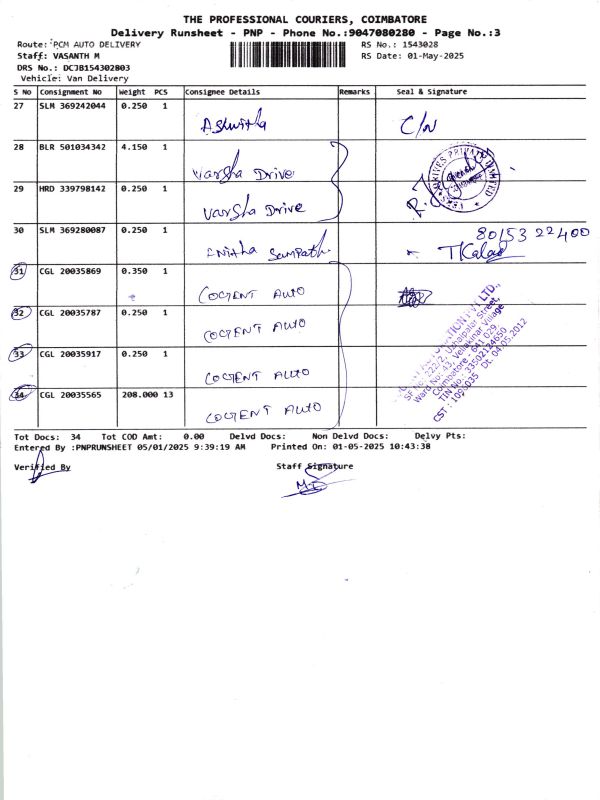 THE PROFESSIONAL COURIERS, COIMBATORE
Delivery Runsheet - PNP - Phone No.:9047080280 - Page No.:3
Route: PCM AUTO DELIVERY RS No.: 1543028
Staff: VASANTH M RS Date: 01-May-2025
DRS No.: DC3B154302803
Vehicle: Van Delivery
S No Consignment No Weight PCS Consignee Details Remarks Seal & Signature
27 SLM 369242044 0.250 1 Ashwitha C/N
28 BLR 501034342 4.150 1 Varsha Drive
29 HRD 339798142 0.250 1 Varsha Drive
30 SLM 369280087 0.250 1 Anitha Sampath 80153 22400
TKalai
31 CGL 20035869 0.350 1 COGENT AUTO
32 CGL 20035787 0.250 1 COGENT AUTO
33 CGL 20035917 0.250 1 COGENT AUTO
34 CGL 20035565 208.000 13 COGENT AUTO
SF No. 222/2, Uppilipalar Street,
Ward No: 43, Vellakinar Village
Coimbatore - 641 029
TIN No.: 33502124650
CST : 1095035 Dt. 04.05.2012
Tot Docs: 34 Tot COD Amt: 0.00 Delvd Docs: Non Delvd Docs: Delvy Pts:
Entered By :PNPRUNSHEET 05/01/2025 9:39:19 AM Printed On: 01-05-2025 10:43:38
Verified By Staff Signature